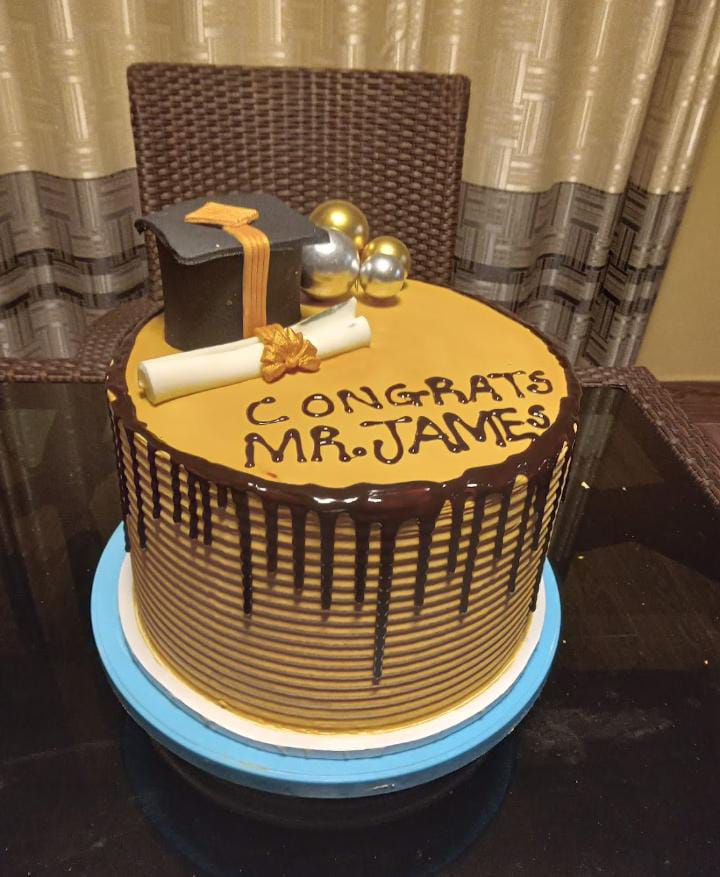 CONGRATS
MR.JAMES